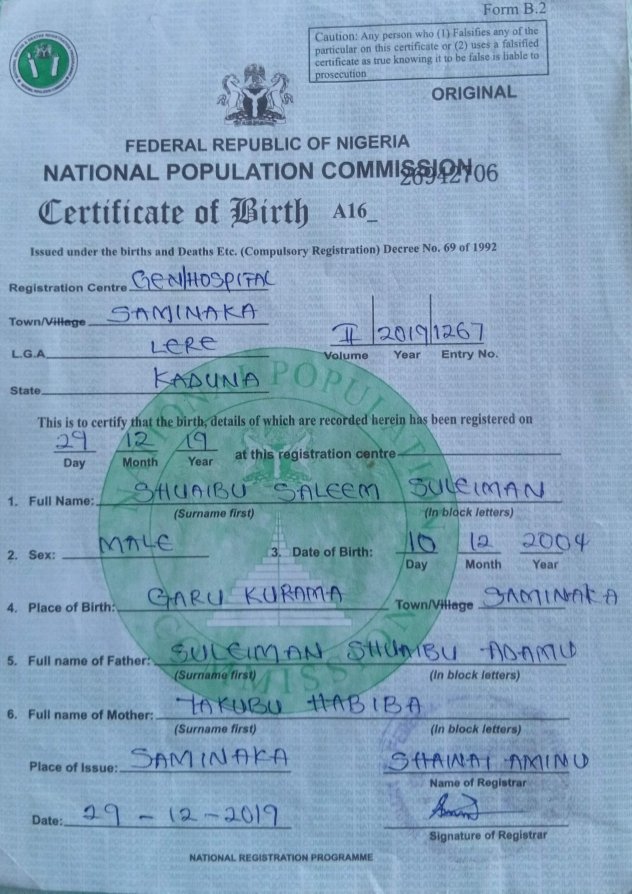 Form B.2
Caution: Any person who (1) Falsifies any of the
particular on this certificate or (2) uses a falsified
certificate as true knowing it to be false is liable to
prosecution
ORIGINAL
FEDERAL REPUBLIC OF NIGERIA
NATIONAL POPULATION COMMISSION
26942706
Certificate of Birth A16_
Issued under the births and Deaths Etc. (Compulsory Registration) Decree No. 69 of 1992
Registration Centre GEN/HOSPITAL
Town/Village SAMINAKA
L.G.A LERE
II 2019 1267
Volume Year Entry No.
State KADUNA
This is to certify that the birth, details of which are recorded herein has been registered on
29 12 19 at this registration centre
Day Month Year
1. Full Name: SHUAIBU SALEEM SULEIMAN
(Surname first) (In block letters)
2. Sex: MALE 3. Date of Birth: 10 12 2004
Day Month Year
4. Place of Birth: GARU KURAMA Town/Village SAMINAKA
5. Full name of Father: SULEIMAN SHUAIBU ADAMU
(Surname first) (In block letters)
6. Full name of Mother: YAKUBU HABIBA
(Surname first) (In block letters)
Place of Issue: SAMINAKA AMINU
Name of Registrar
Date: 29 - 12 - 2019
Signature of Registrar
NATIONAL REGISTRATION PROGRAMME
NATIONAL POPULATION COMMISSION